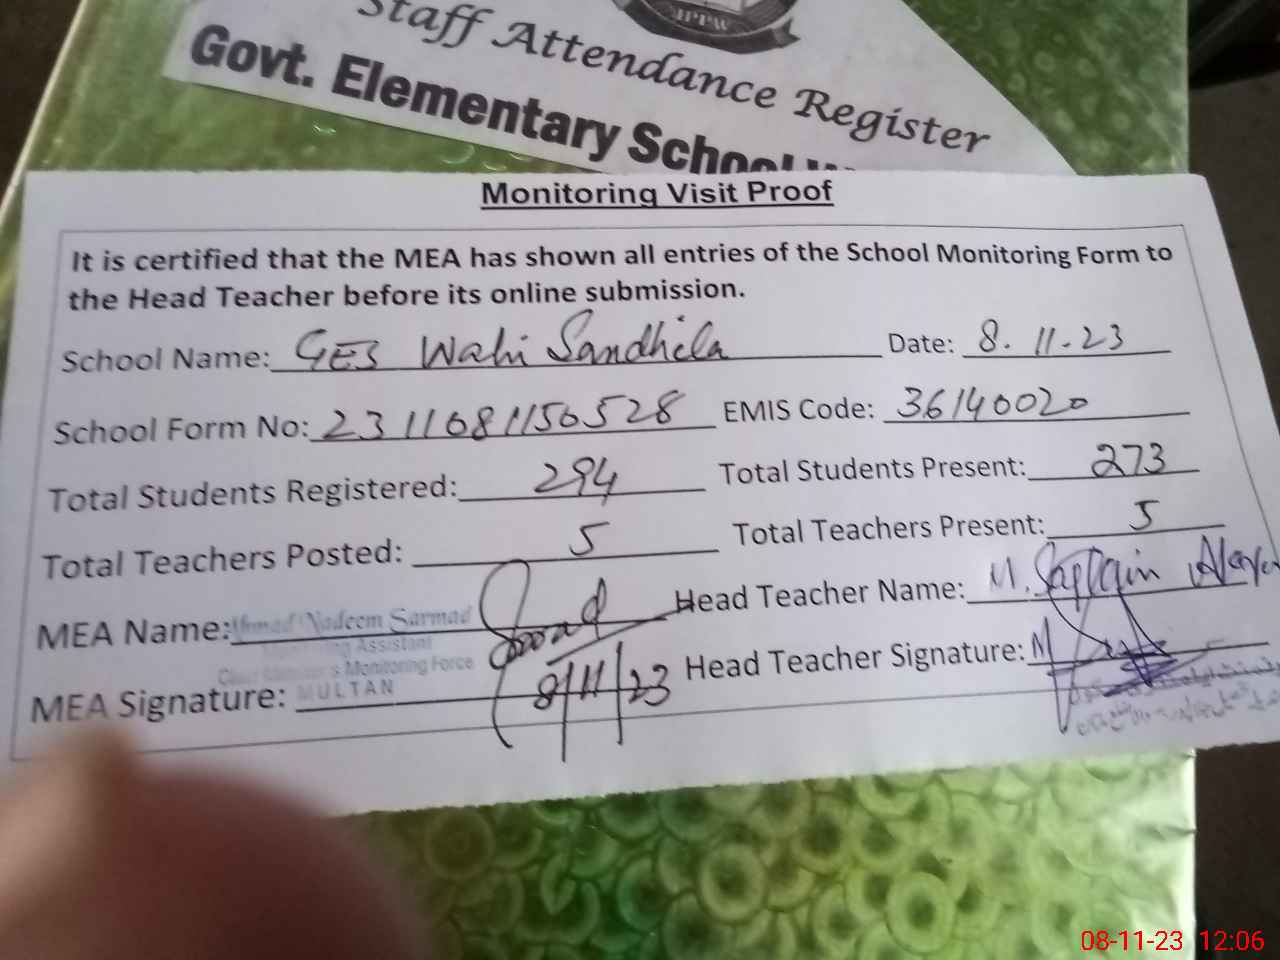 Staff Attendance Register
Govt. Elementary School
Monitoring Visit Proof
It is certified that the MEA has shown all entries of the School Monitoring Form to
the Head Teacher before its online submission.
School Name: GES Wahi Sandhila Date: 8.11.23
School Form No: 2311081150528 EMIS Code: 36140020
Total Students Registered: 294 Total Students Present: 273
Total Teachers Posted: 5 Total Teachers Present: 5
MEA Name: Ahmad Nadeem Sarmad Head Teacher Name: M.
Monitoring Assistant
Chief Minister's Monitoring Force
MEA Signature: MULTAN 8/11/23 Head Teacher Signature:
08-11-23 12:06